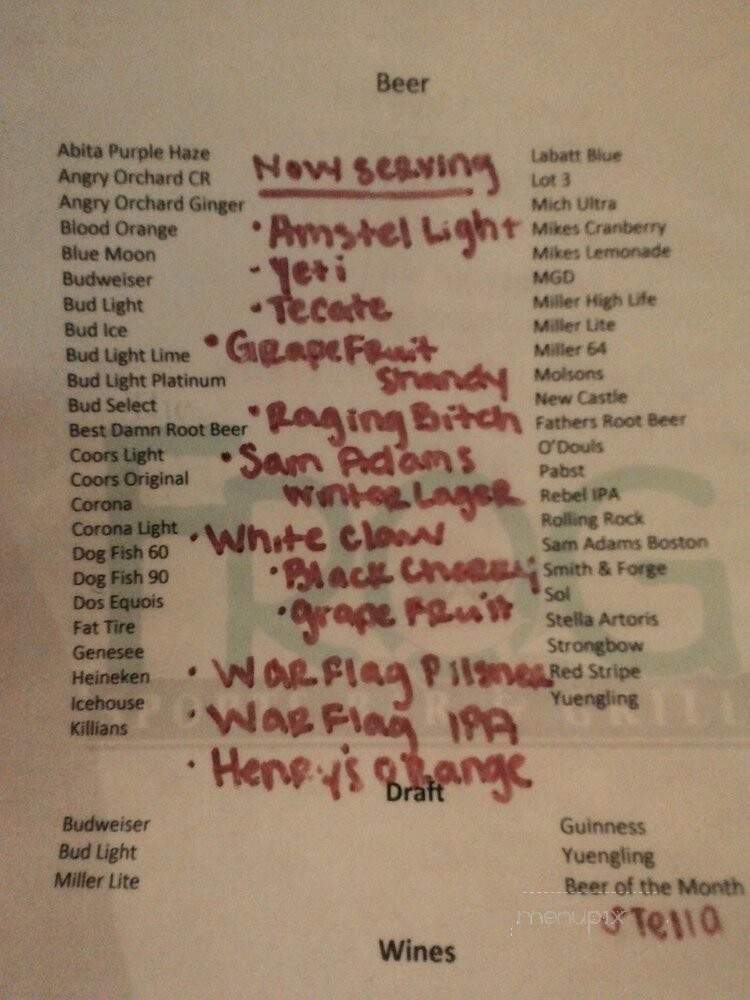 Beer
Abita Purple Haze
Angry Orchard CR
Angry Orchard Ginger
Blood Orange
Blue Moon
Budweiser
Bud Light
Bud Ice
Bud Light Lime
Bud Light Platinum
Bud Select
Best Damn Root Beer
Coors Light
Coors Original
Corona
Corona Light
Dog Fish 60
Dog Fish 90
Dos Equois
Fat Tire
Genesee
Heineken
Icehouse
Killians
Now serving
• Amstel Light
- Yeti
• Tecate
• GRapeFRuit
Shandy
• Raging Bitch
• Sam Adams
Winter Lager
• White Claw
• Black Cherry
• grape FRuit
• WaR Flag Pilsner
• WaR Flag IPA
• Henry's oRange
Labatt Blue
Lot 3
Mich Ultra
Mikes Cranberry
Mikes Lemonade
MGD
Miller High Life
Miller Lite
Miller 64
Molsons
New Castle
Fathers Root Beer
O'Douls
Pabst
Rebel IPA
Rolling Rock
Sam Adams Boston
Smith & Forge
Sol
Stella Artoris
Strongbow
Red Stripe
Yuengling
FROG
Draft
Budweiser
Bud Light
Miller Lite
Guinness
Yuengling
Beer of the Month
STella
menupix
Wines